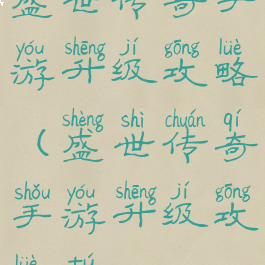 盛世传奇手
yóu shēng jí gōng lüè
游升级攻略
shèng shì chuán qí
(盛世传奇
shǒu yóu shēng jí gōng
手游升级攻
lüè